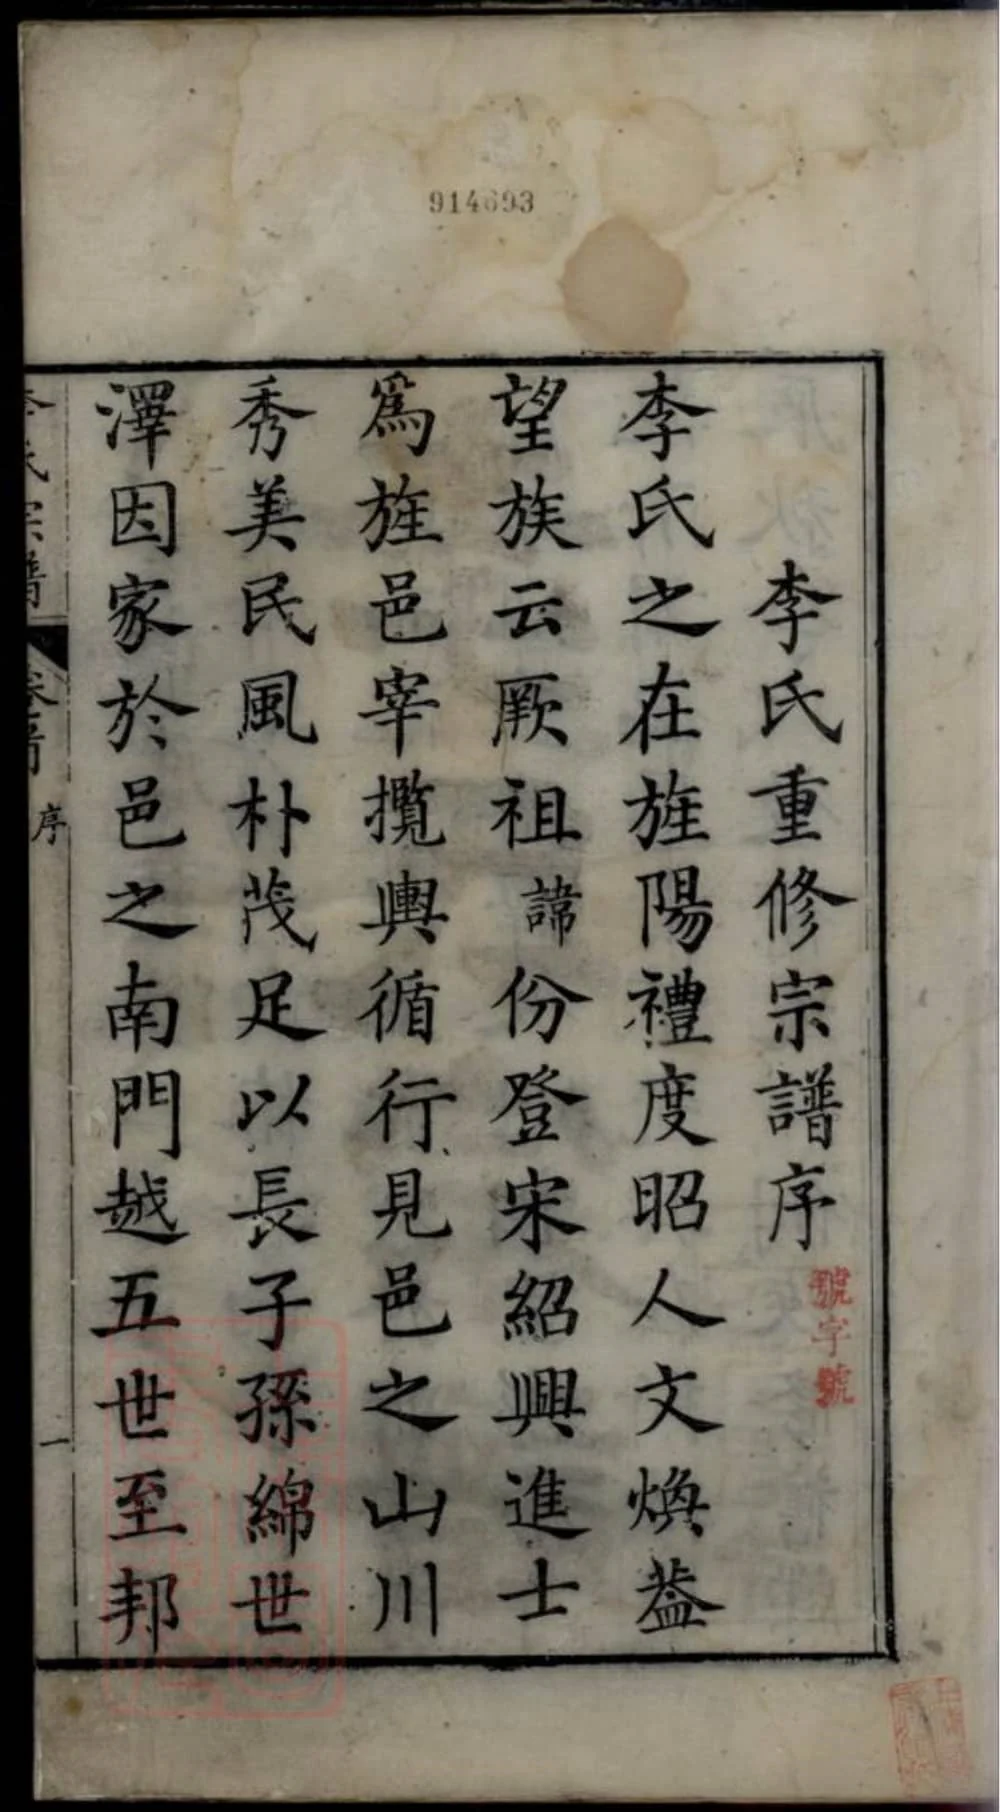 914693
李氏重修宗譜序
號字號
李氏之在旌陽禮度昭人文煥葢
望族云厥祖諱份登宋紹興進士
爲旌邑宰攬輿循行見邑之山川
秀美民風朴茂足以長子孫綿世
澤因家於邑之南門越五世至邦
李氏宗譜 卷首 序 一